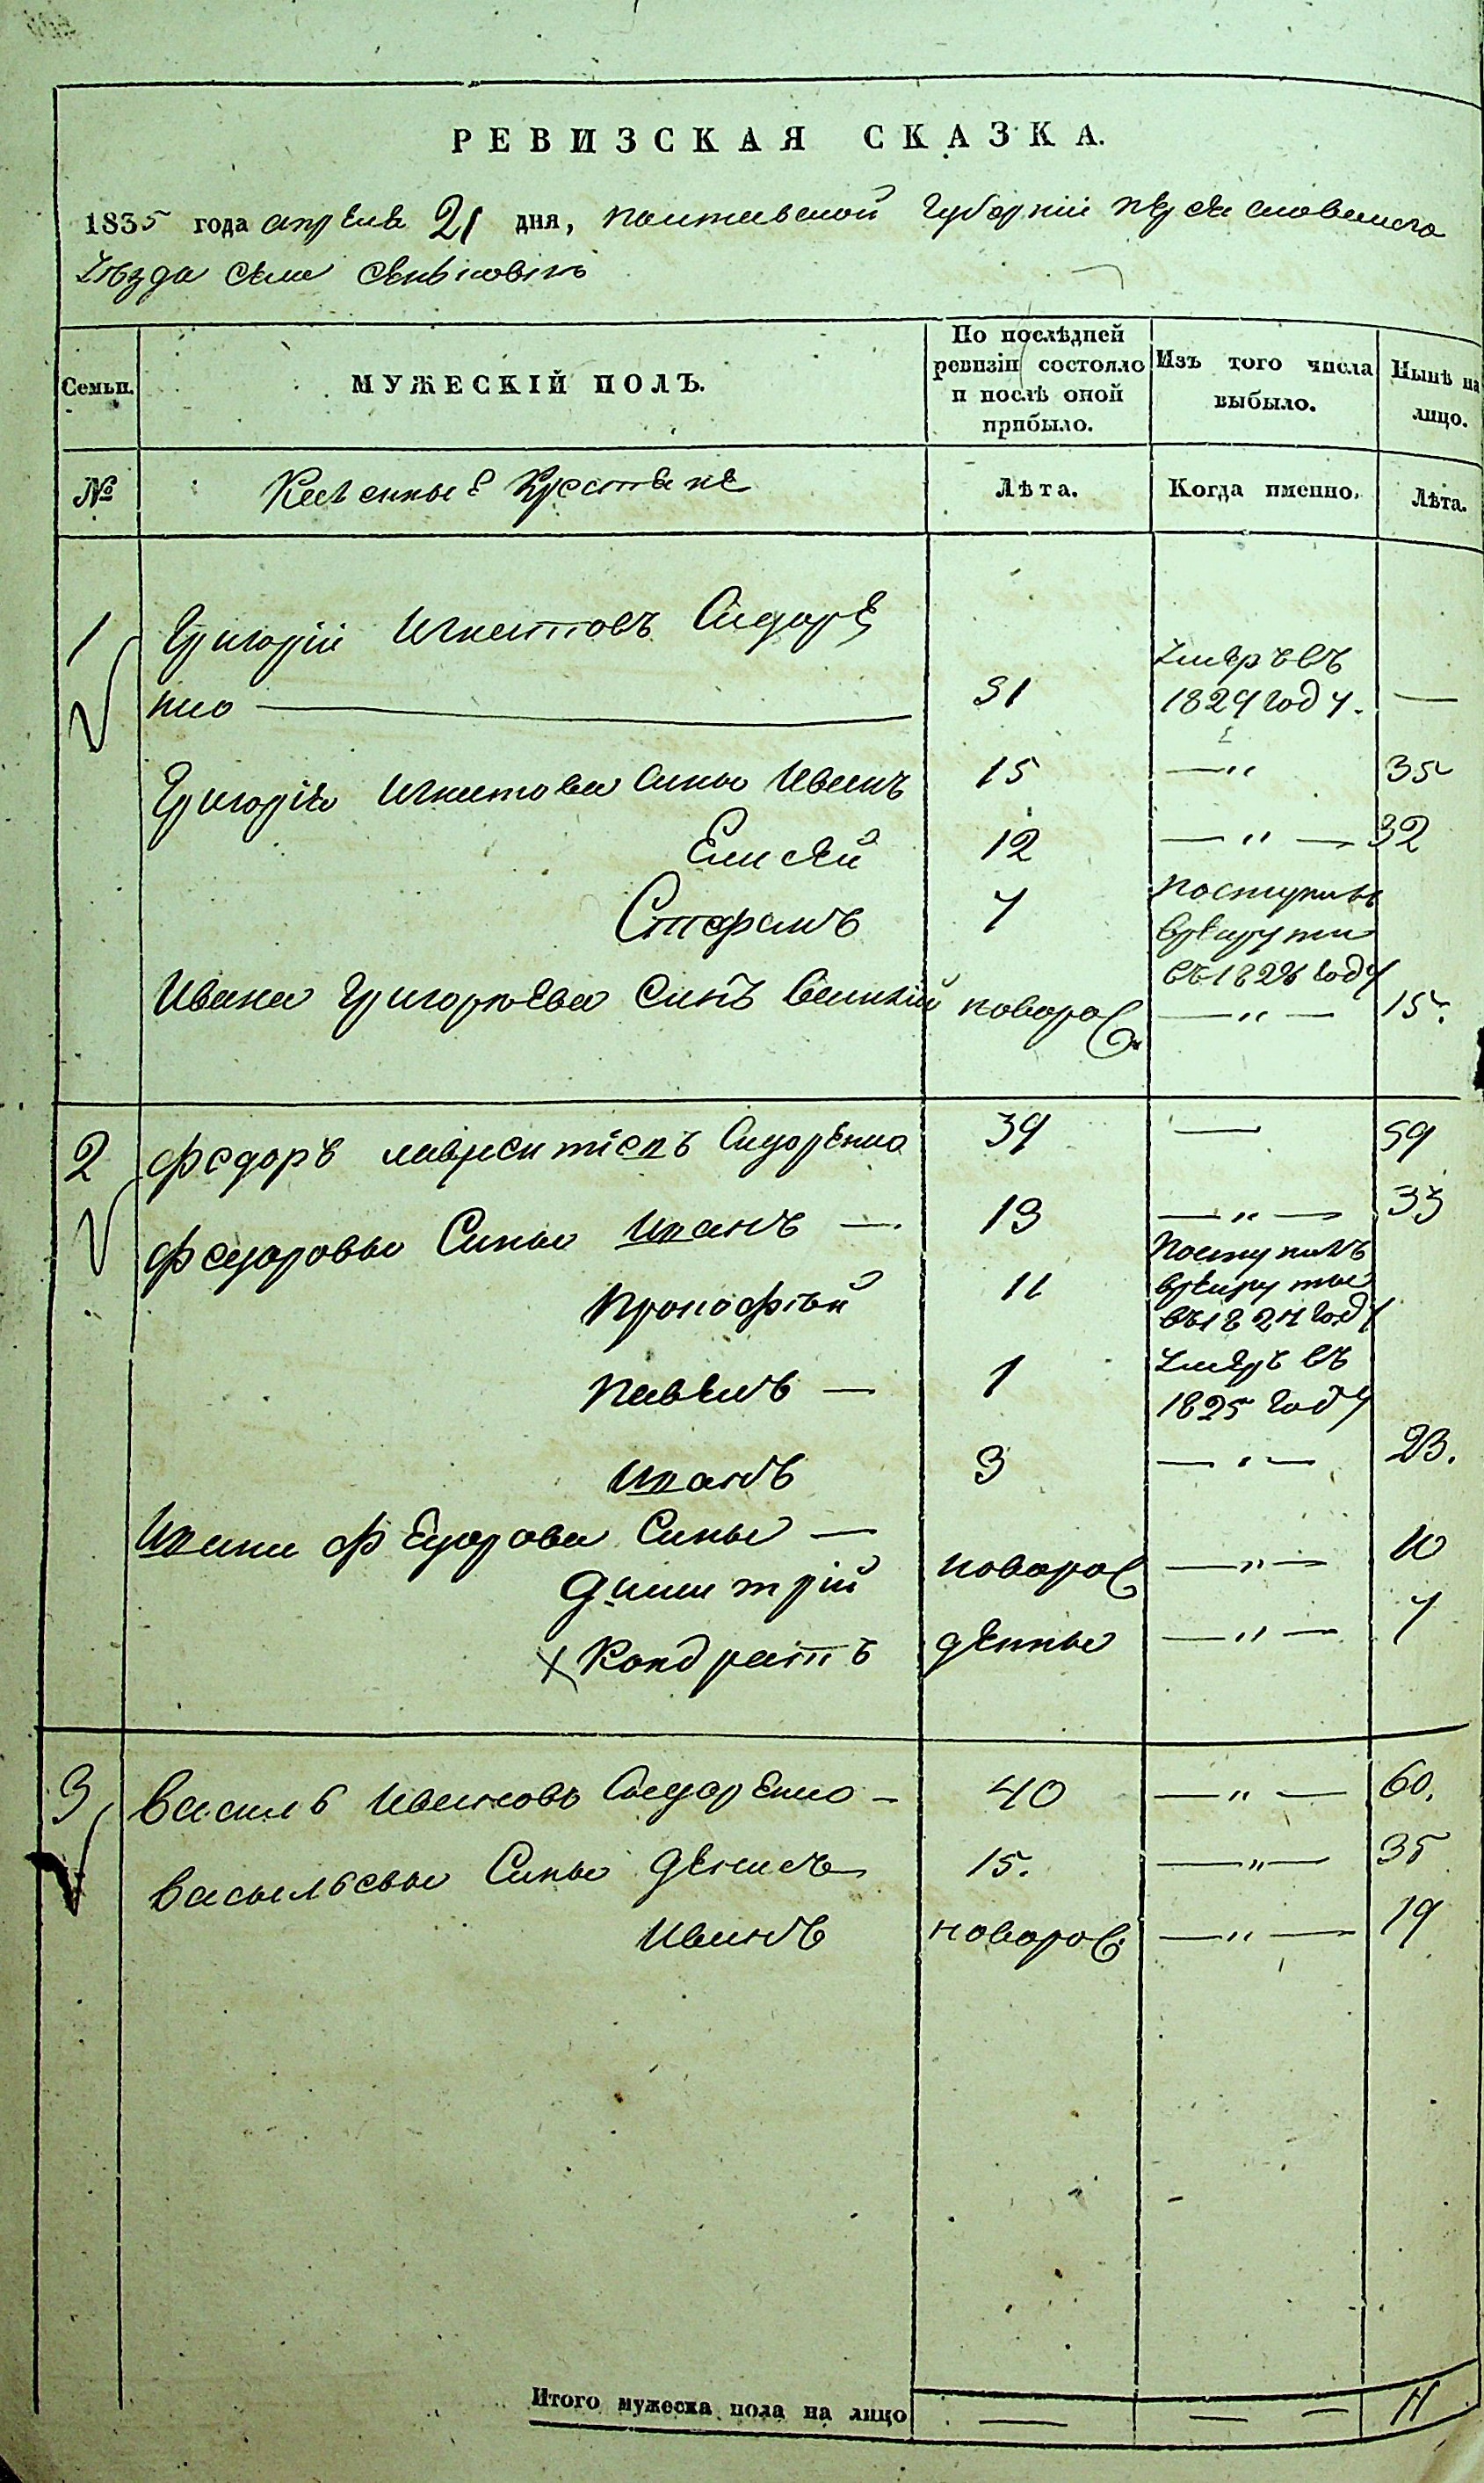 РЕВИЗСКАЯ СКАЗКА.
1835 года апреля 21 дня, полтавской Губернiи переясловского
Уѣзда села
Семьи.
МУЖЕСКІЙ ПОЛЪ.
По послѣдней
ревизіи состояло
и послѣ оной
прибыло.
Изъ того числа
выбыло.
Нынѣ на
лицо.
№
Казенные Крестяне
Лѣта.
Когда именно.
Лѣта.
1 Григорiй Игнатовъ Сидоре
нко — 51 Умеръ въ 1829 году. —
Григорiя Игнатова Сины Иванъ 15 — " 35
Елисей 12 — " — 32
Стефанъ 7 поступилъ
врекруты
въ 1828 году
Ивана Григорьева Синъ Василiй новорос — " — 15.
2 Федоръ Сидоренко 39 — 59
Федоровы Сины Иванъ — 13 — " — 33
Прокофiй 11 Поступилъ
врекруты
въ 1827 году
Павелъ — 1 Умеръ въ
1825 году
Иванъ 3 — " — 23.
Ивана Федорова Сины —
Димитрiй новорос — " — 10
Кондратъ денные — " — 7
3 Василь Ивановъ Сидоренко — 40 — " — 60.
Васильевы Сины Денисъ 15. — " — 35
Иванъ новорос: — " — 19
Итого мужеска пола на лицо — — — 11